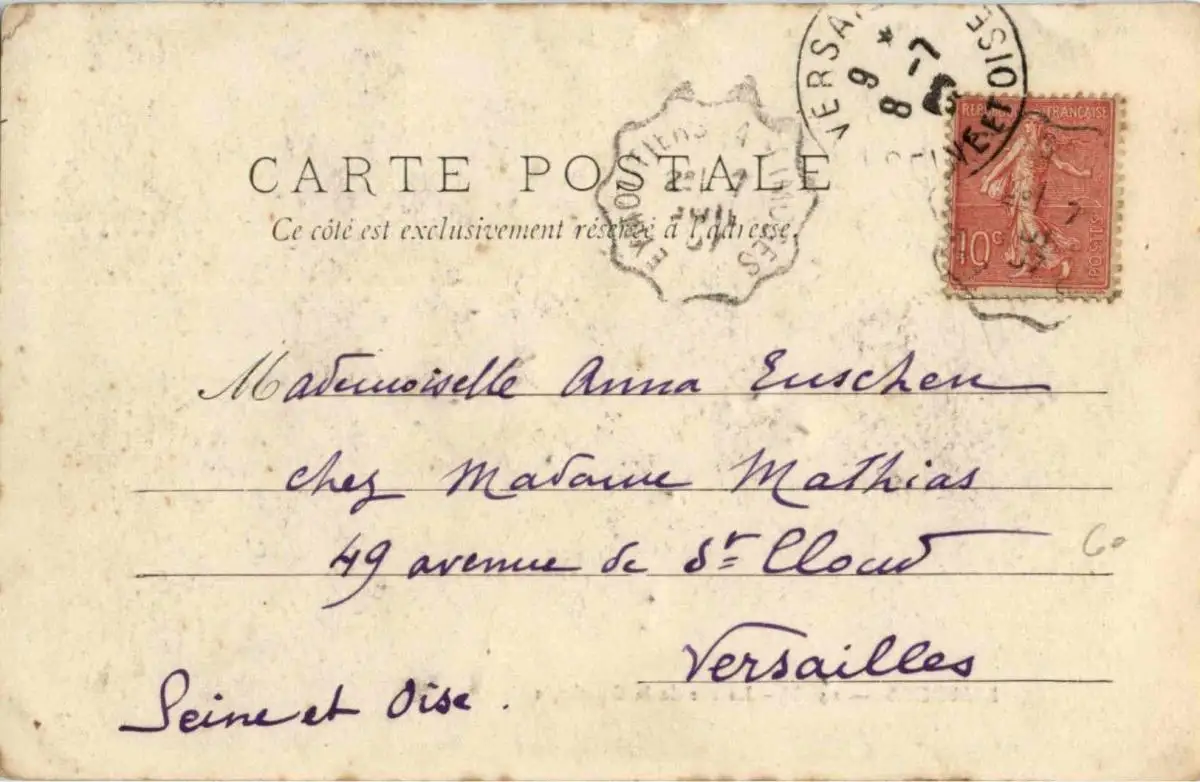 CARTE POSTALE
Ce côté est exclusivement réservé à l'adresse.
EYMOUTIERS A LIMOGES
7
VERSAILLES
SEINE ET OISE
* 9
8 -7
REPUBLIQUE FRANÇAISE
10c
POSTES
Mademoiselle Anna Euschen
chez Madame Mathias
49 avenue de St Cloud
Versailles
Seine et Oise.
60